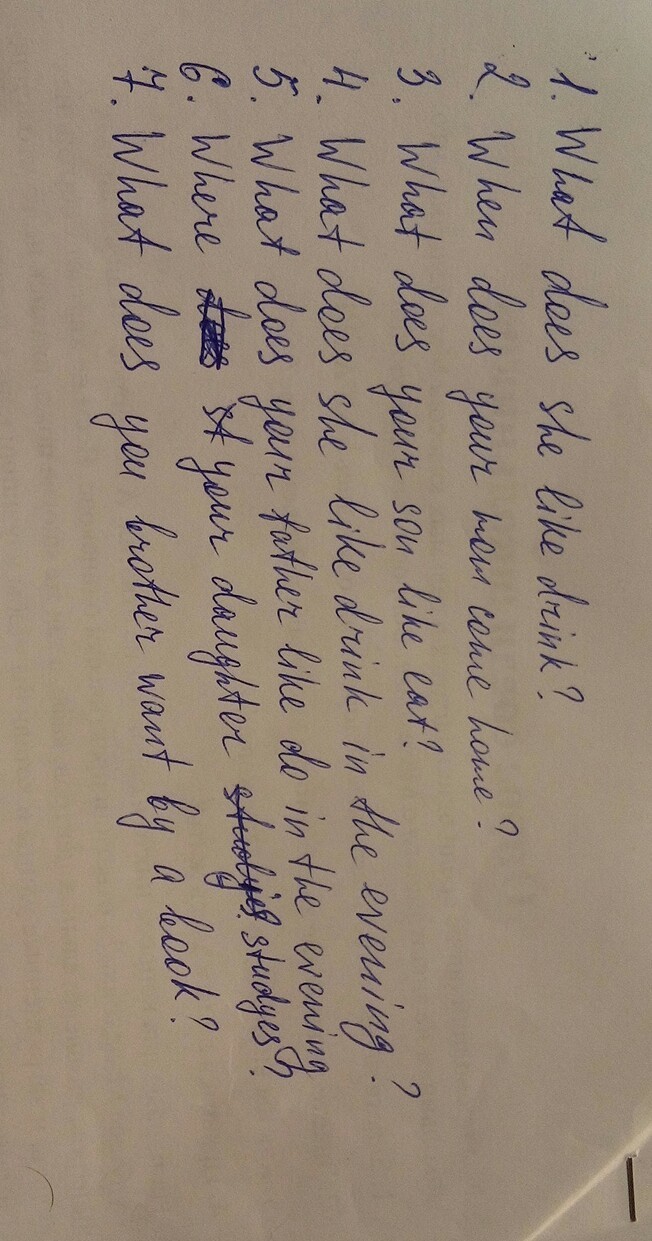 1. What does she like drink?
2. When does your mom come home?
3. What does your son like eat?
4. What does she like drink in the evening?
5. What does your father like do in the evening?
6. Where your daughter studyes?
7. What does you brother want by a book?